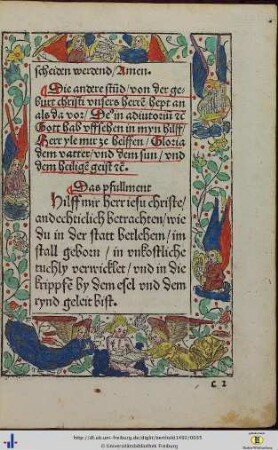 scheiden werdend/Amen.
Die ander stūd/von der ge⸗
burt christi vnsers herrē hept an
als da vor/Dē in adiutoriū ꝛc
Gott hab vffsehen in myn hilff/
Herr yle mir ze helffen/Gloria
dem vatter/vnd dem sun/vnd
dem heiligē geist ꝛc.
Das psallment
Hilff mir herr iesu christe/
andechticlich betrachten/wie
du in der statt betlehem/im
stall geborn/in vnkostliche
tuchly verwicklet/vnd in die
krippfē by dem esel vnd dem
rynd geleit bist.
c 2
http://dl.ub.uni-freiburg.de/diglit/bertholdt1492/0035
© Universitätsbibliothek Freiburg